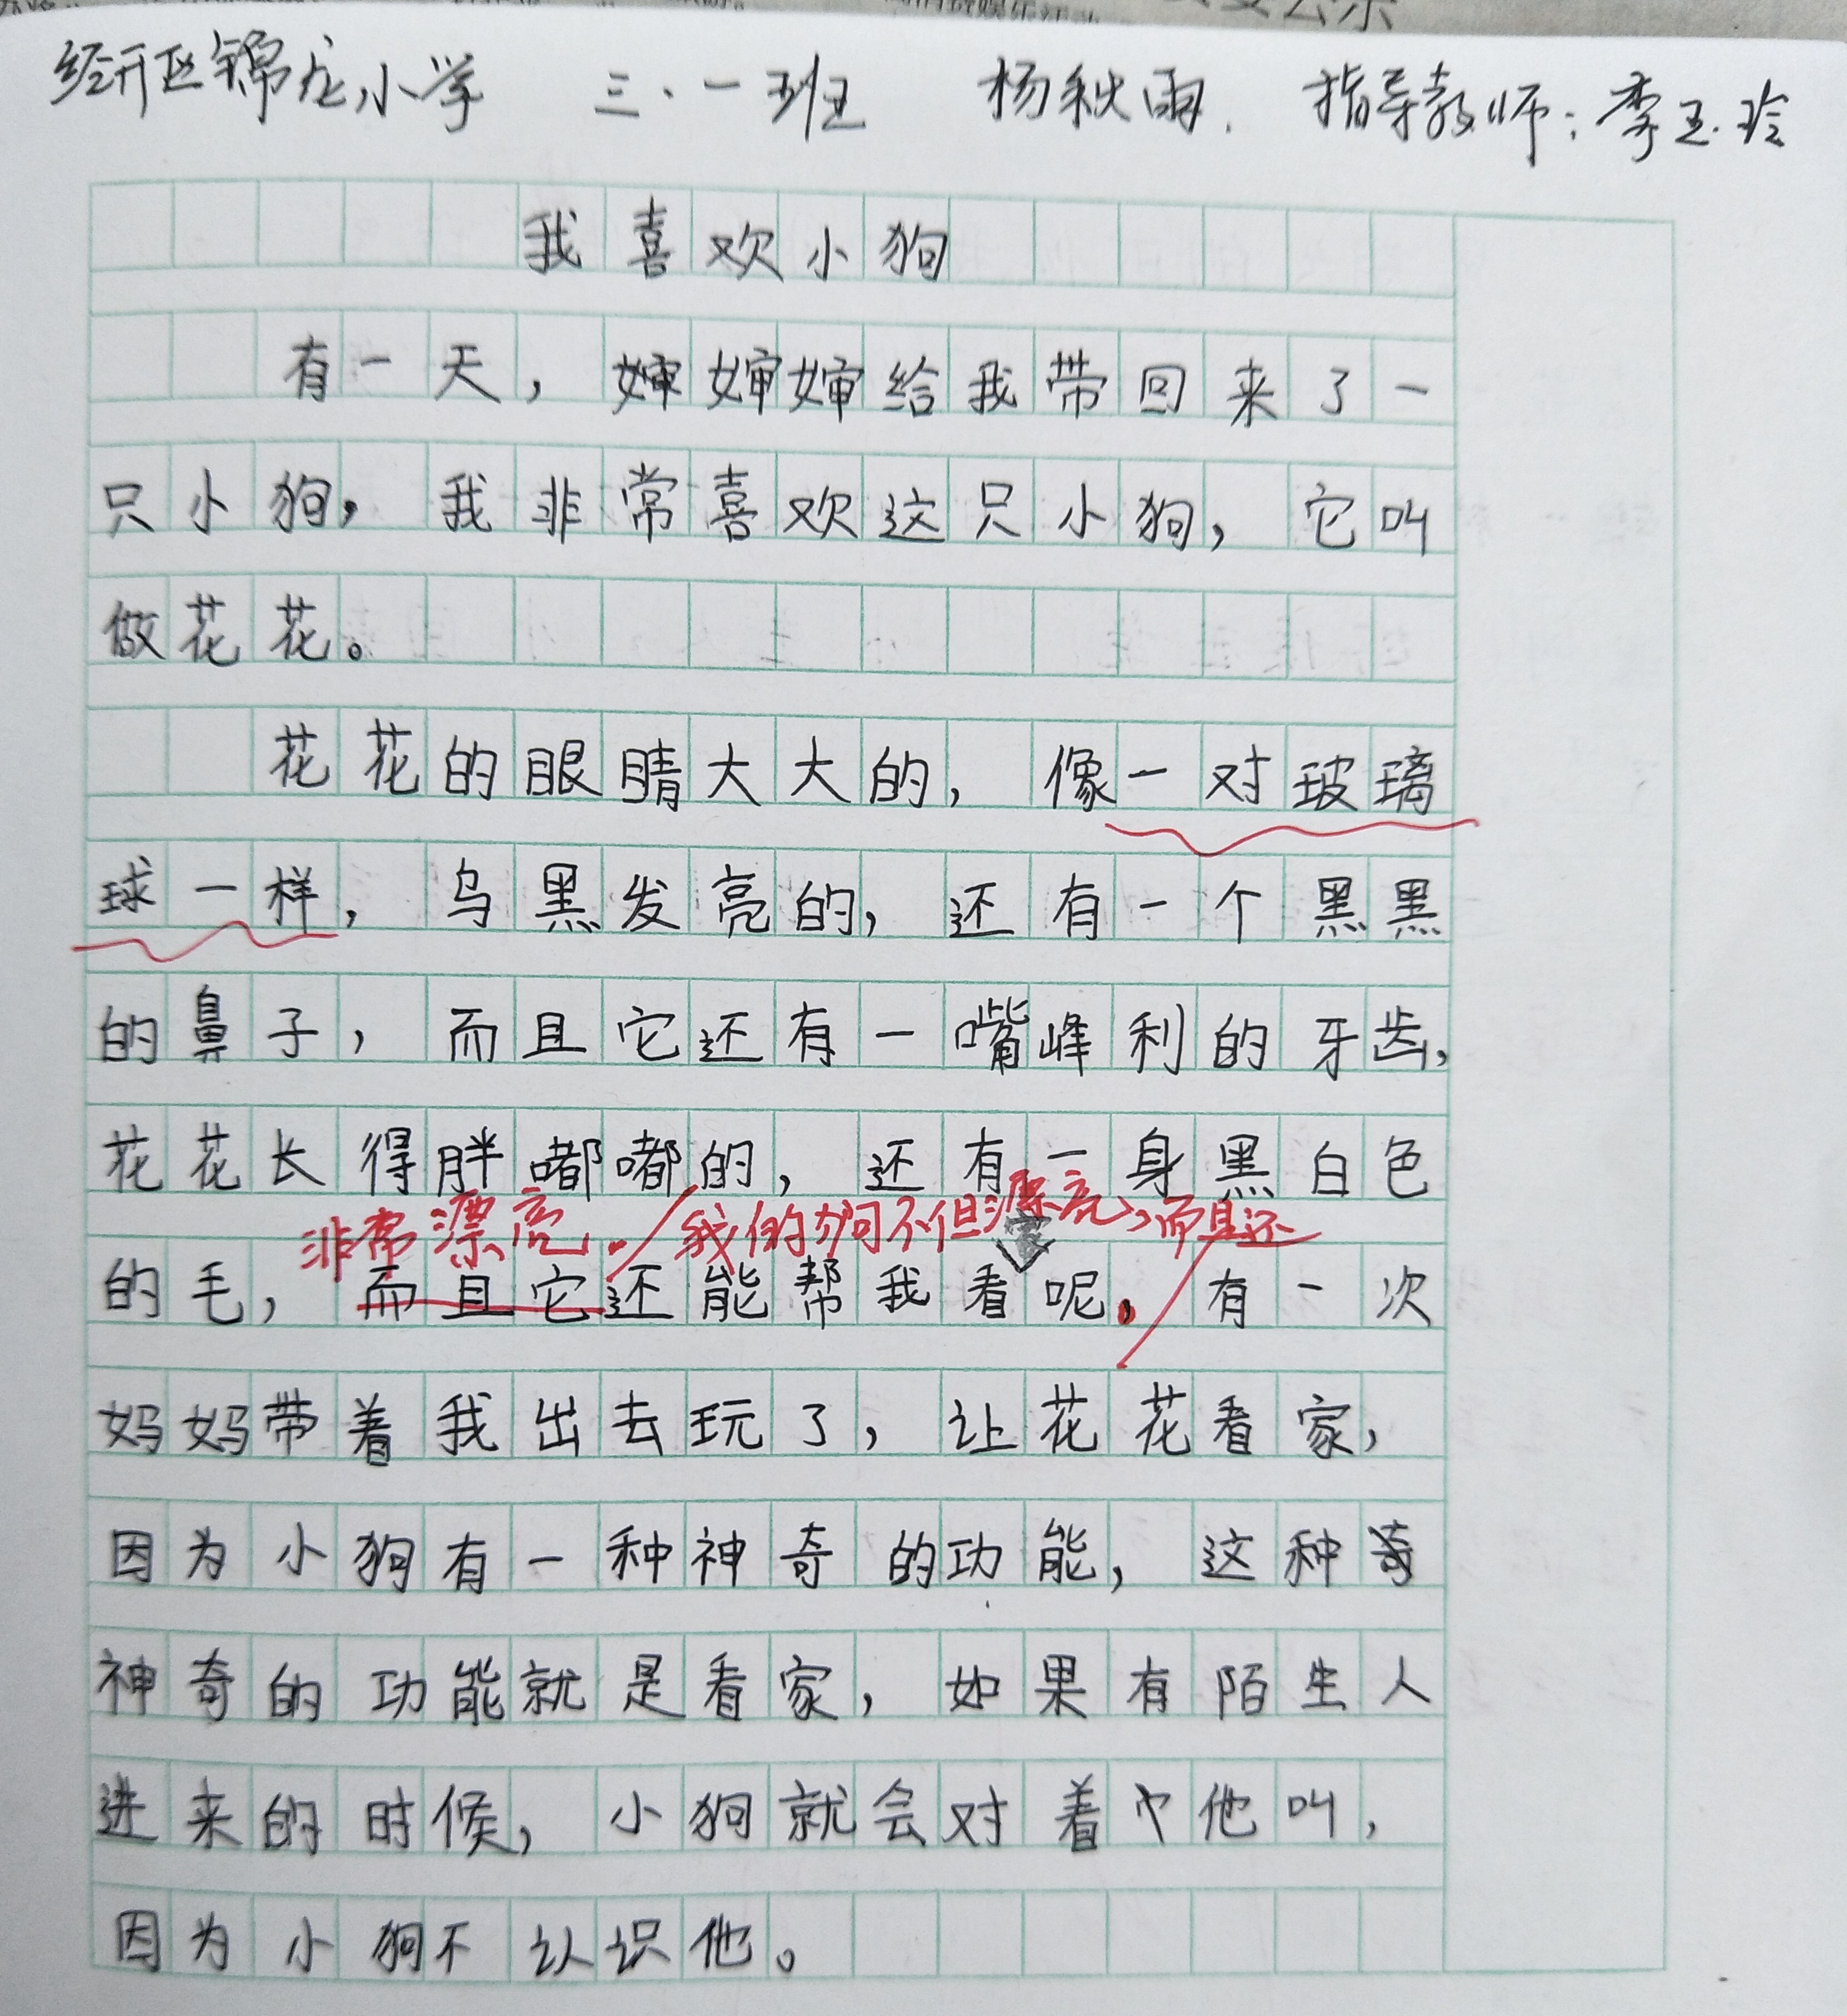 经开区锦庄小学 三.一班 杨秋雨. 指导教师:李玉玲
我喜欢小狗
有一天,婶婶婶给我带回来了一
只小狗,我非常喜欢这只小狗,它叫
做花花。
花花的眼睛大大的,像一对玻璃
球一样,乌黑发亮的,还有一个黑黑
的鼻子,而且它还有一嘴峰利的牙齿,
花花长得胖嘟嘟的,还有一身黑白色
非常漂亮。我的狗不但漂亮,而且还
的毛,而且它还能帮我看家呢,有一次
妈妈带着我出去玩了,让花花看家,
因为小狗有一种神奇的功能,这种奇
神奇的功能就是看家,如果有陌生人
进来的时候,小狗就会对着他叫,
因为小狗不认识他。